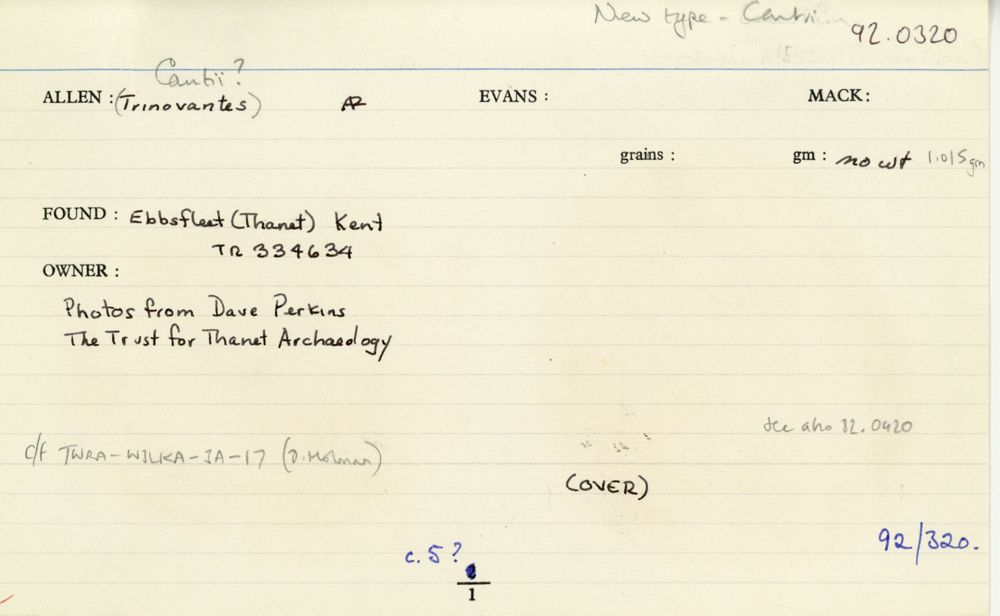 New type - Cantii
92.0320
Cantii?
ALLEN : (Trinovantes) AR EVANS : MACK:
grains : gm : no wt 1.015gm
FOUND : Ebbsfleet (Thanet) Kent
TR 334634
OWNER :
Photos from Dave Perkins
The Trust for Thanet Archaeology
see also 82.0420
c/f TWRA-WILKA-IA-17 (D. Holman)
(OVER)
92/320.
c. 5?
1